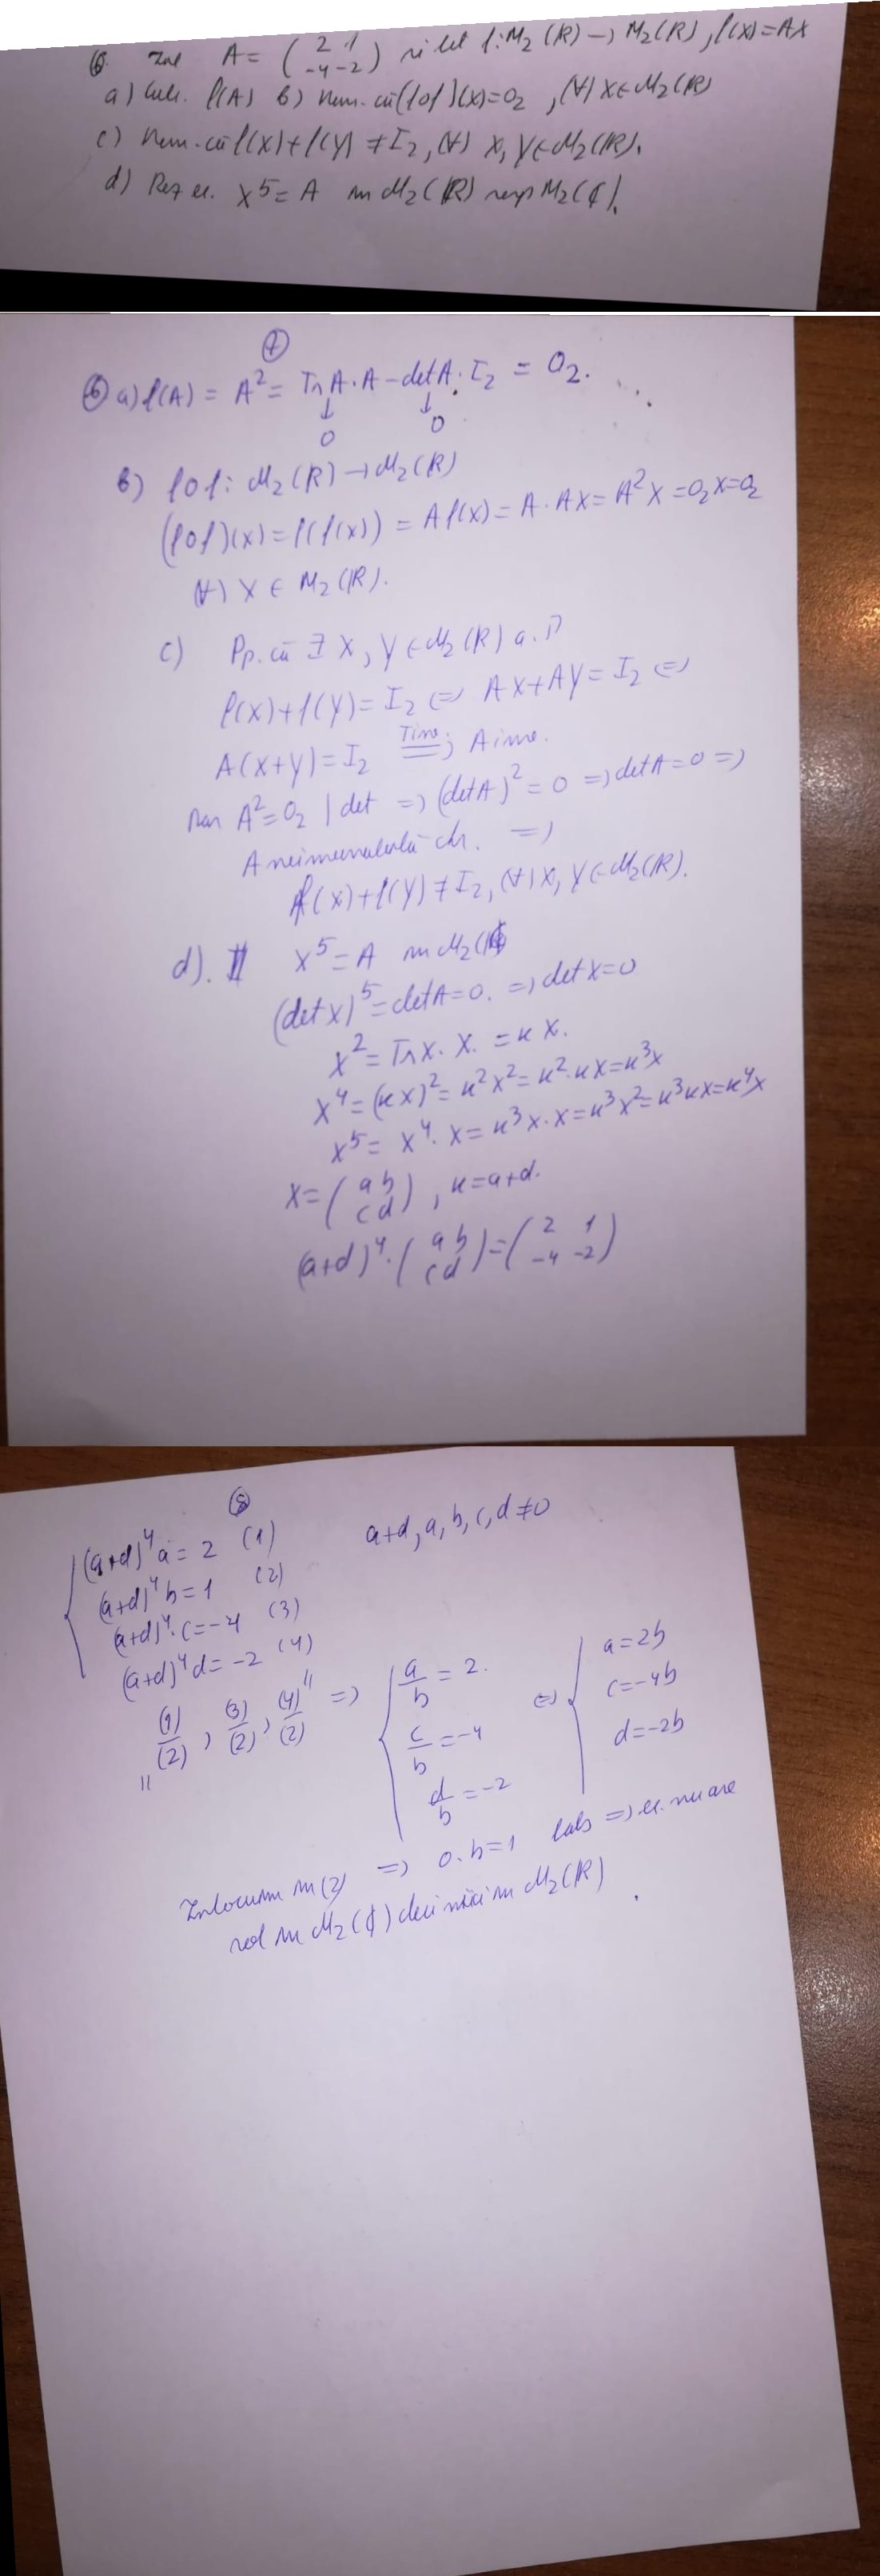 6. Fie A = ( 2 1 -4 -2 ) și fct f: M₂(R) → M₂(R), f(x) = AX
a) Calc. f(A) b) Dem. că (fof)(x) = O₂, (∀) X ∈ M₂(R)
c) Dem. că f(x) + f(y) ≠ I₂, (∀) X, Y ∈ M₂(R).
d) Rez ec. X⁵ = A în M₂(R) resp M₂(ℂ).
7
6 a) f(A) = A² = Tr A · A - det A · I₂ = O₂.
↓ ↓
0 0
b) fof: M₂(R) → M₂(R)
(fof)(x) = f(f(x)) = Af(x) = A · AX = A²X = O₂X = O₂
(∀) X ∈ M₂(R).
c) Pp. că ∃ X, Y ∈ M₂(R) a. î
f(x) + f(y) = I₂ ⇔ AX + AY = I₂ ⇔
A(X+Y) = I₂ ⇒ A inv.
Dar A² = O₂ | det ⇒ (det A)² = 0 ⇒ det A = 0 ⇒
A neinversabilă ⇒
f(x) + f(y) ≠ I₂, (∀) X, Y ∈ M₂(R).
d). X⁵ = A în M₂(ℂ)
(det X)⁵ = det A = 0. ⇒ det X = 0
X² = Tr X · X. = κ X.
X⁴ = (κX)² = κ²X² = κ² · κX = κ³X
X⁵ = X⁴ · X = κ³X · X = κ³X² = κ³κX = κ⁴X
X = ( a b c d ), κ = a+d.
(a+d)⁴ · ( a b c d ) = ( 2 1 -4 -2 )
8
(a+d)⁴ a = 2 (1) a+d, a, b, c, d ≠ 0
(a+d)⁴ b = 1 (2)
(a+d)⁴ · c = -4 (3)
(a+d)⁴ d = -2 (4)
" (1)/(2), (3)/(2), (4)/(2) " ⇒ { a/b = 2. ⇔ { a = 2b
c/b = -4 c = -4b
d/b = -2 d = -2b
Înlocuim în (2) ⇒ 0 · b = 1 fals ⇒ ec. nu are
sol în M₂(ℂ) deci nici în M₂(R)